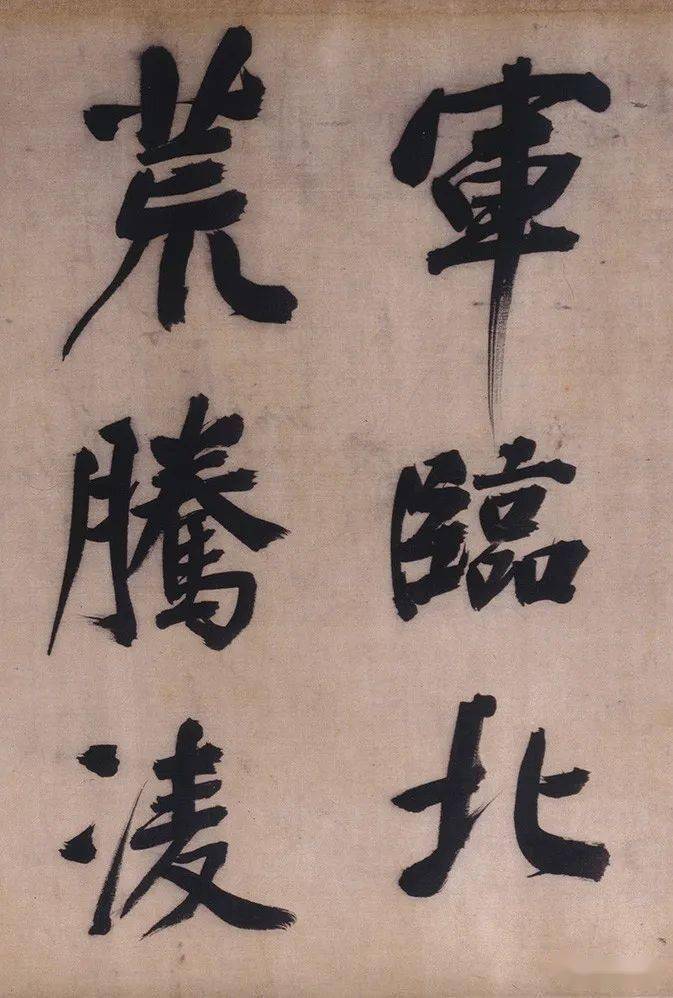 軍臨北
荒騰凌